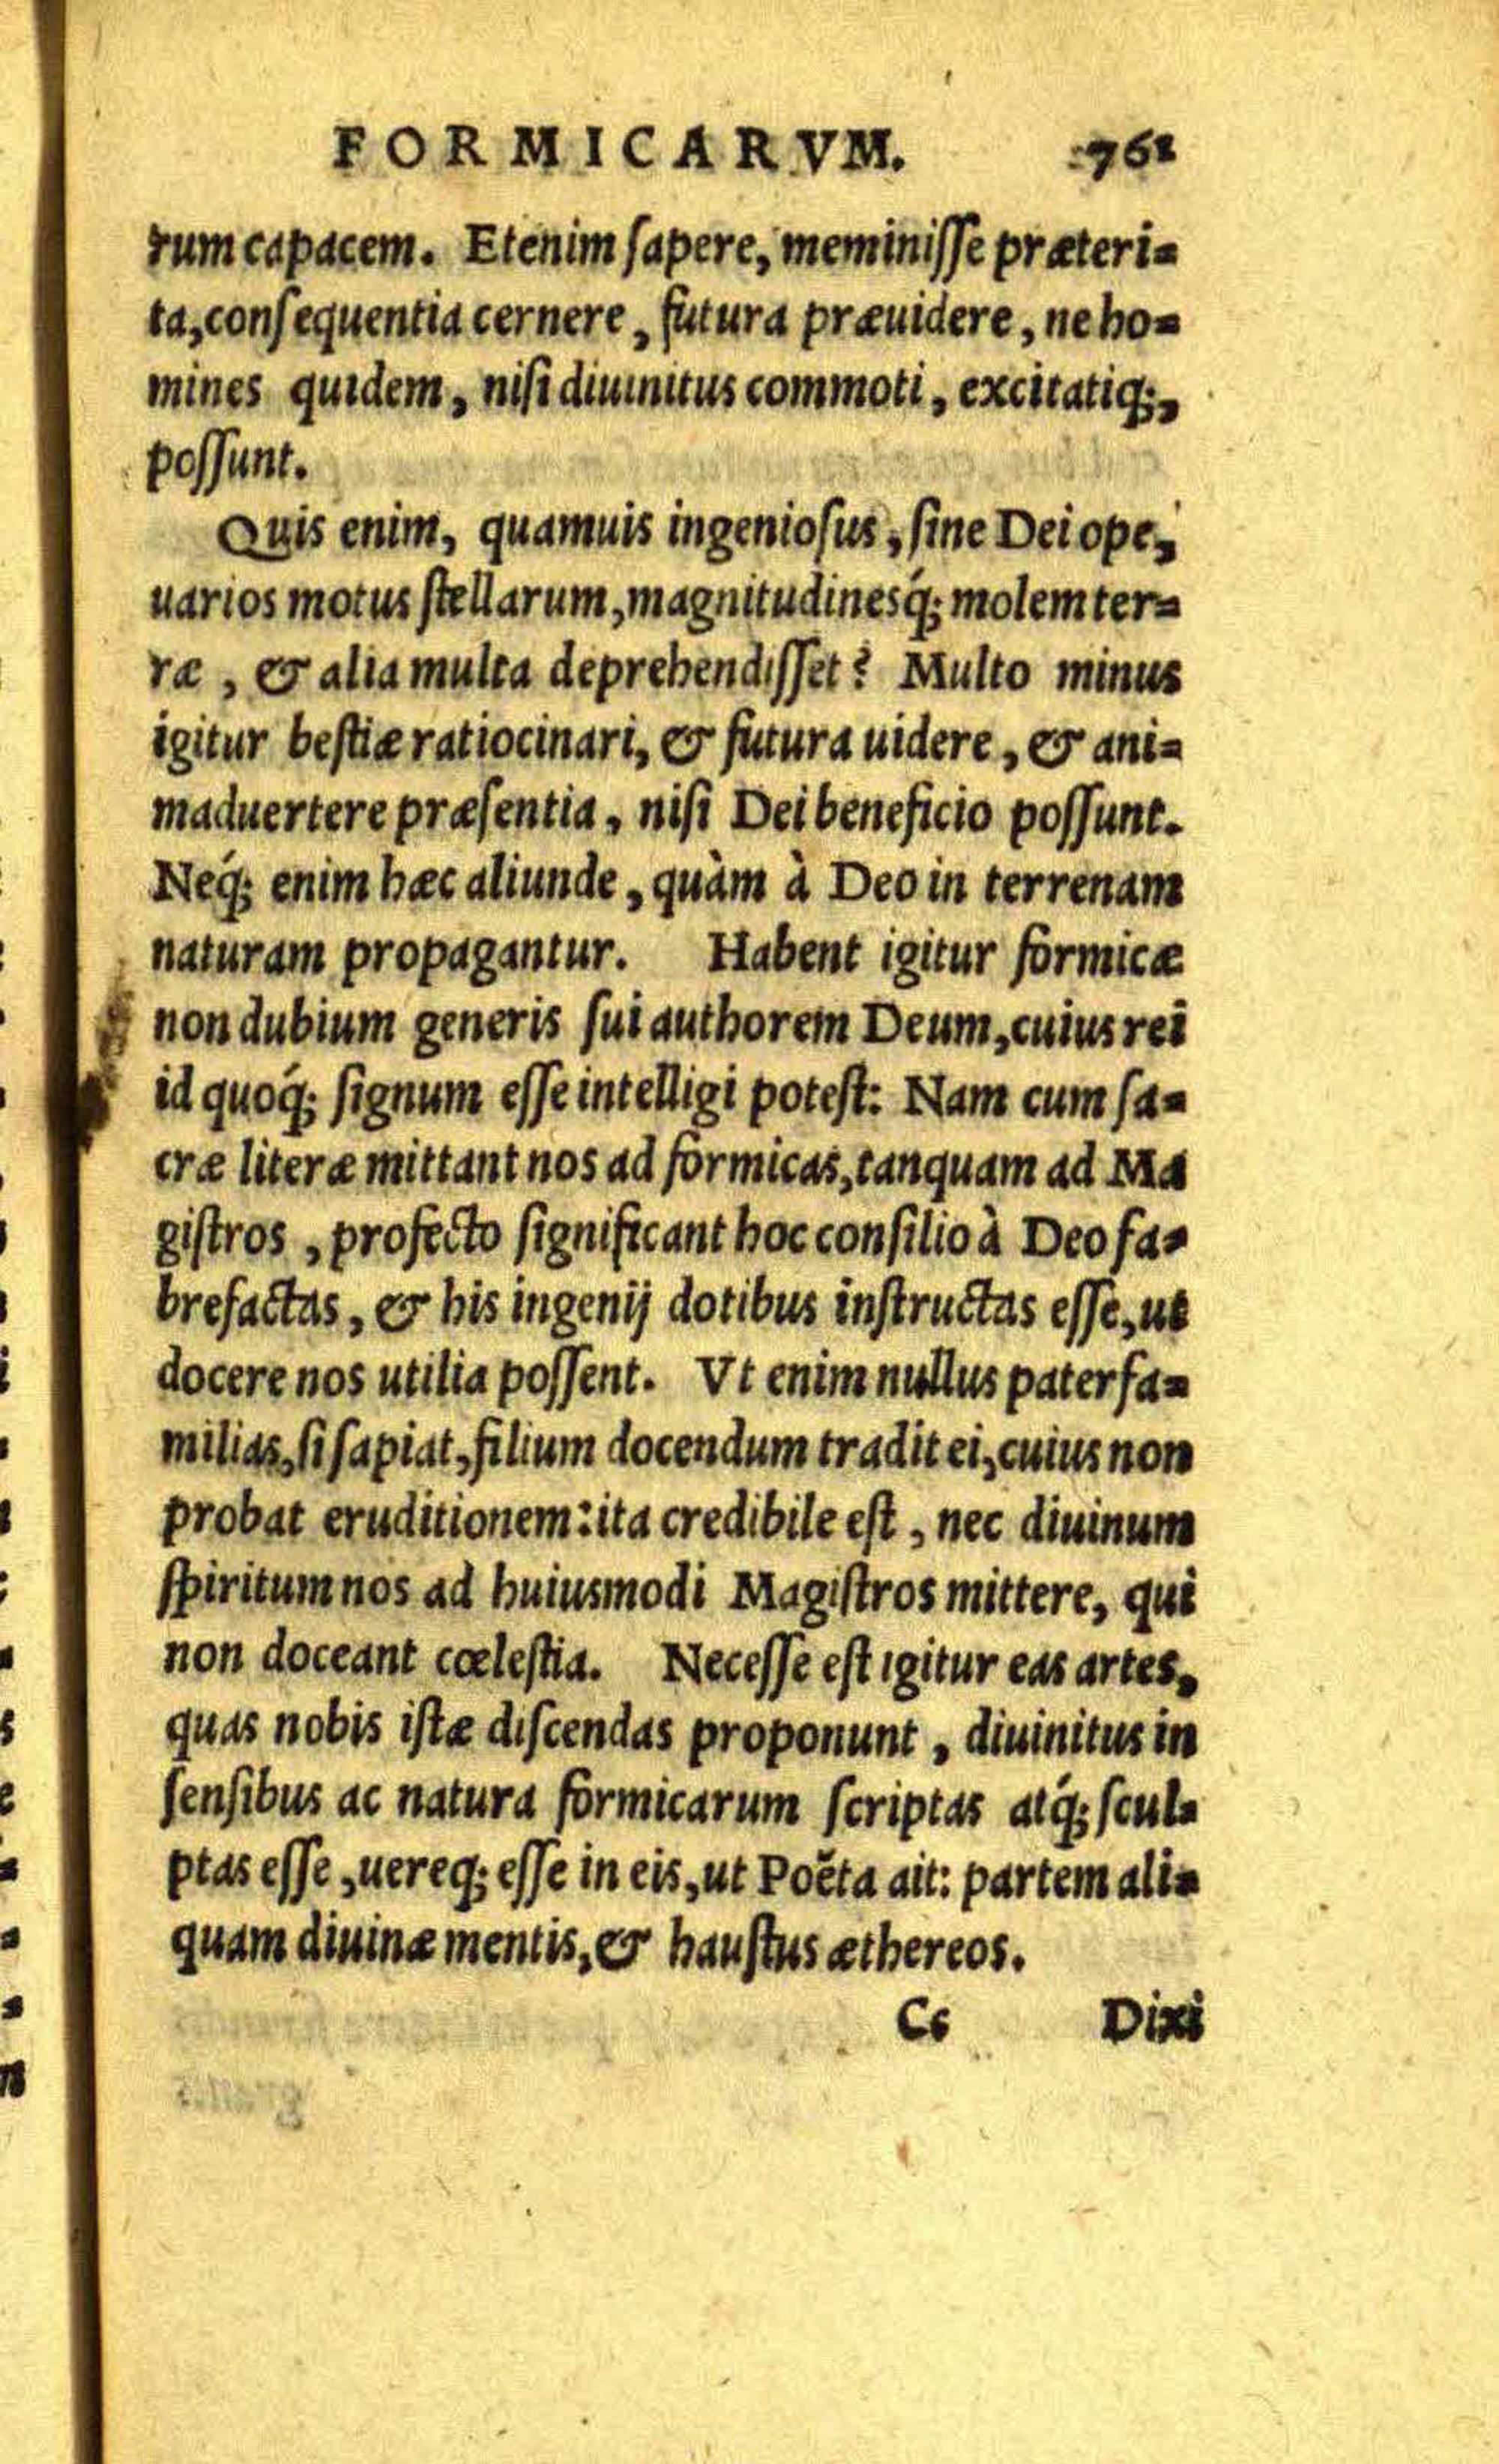 FORMICARVM. 761
rum capacem. Etenim ſapere, meminiſſe præteri-
ta, conſequentia cernere, futura præuidere, ne ho-
mines quidem, niſi diuinitus commoti, excitatiq;,
poſſunt.
Quis enim, quamuis ingenioſus, ſine Dei ope,
uarios motus ſtellarum, magnitudinesq́; molem ter-
ræ, & alia multa deprehendiſſet? Multo minus
igitur beſtiæ ratiocinari, & futura uidere, & ani-
maduertere præſentia, niſi Dei beneficio poſſunt.
Neq́; enim hæc aliunde, quàm à Deo in terrenam
naturam propagantur. Habent igitur formicæ
non dubium generis ſui authorem Deum, cuius rei
id quoq́; ſignum eſſe intelligi poteſt: Nam cum ſa-
cræ literæ mittant nos ad formicas, tanquam ad Ma
giſtros, profecto ſignificant hoc conſilio à Deo fa-
brefactas, & his ingenij dotibus inſtructas eſſe, ut
docere nos utilia poſſent. Vt enim nullus paterfa-
milias, ſi ſapiat, filium docendum tradit ei, cuius non
probat eruditionem: ita credibile eſt, nec diuinum
ſpiritum nos ad huiusmodi Magiſtros mittere, qui
non doceant cœleſtia. Neceſſe eſt igitur eas artes,
quas nobis iſtæ diſcendas proponunt, diuinitus in
ſenſibus ac natura formicarum ſcriptas atq́; ſcul-
ptas eſſe, uereq; eſſe in eis, ut Poëta ait: partem ali-
quam diuinæ mentis, & hauſtus æthereos.
Cc Dixi